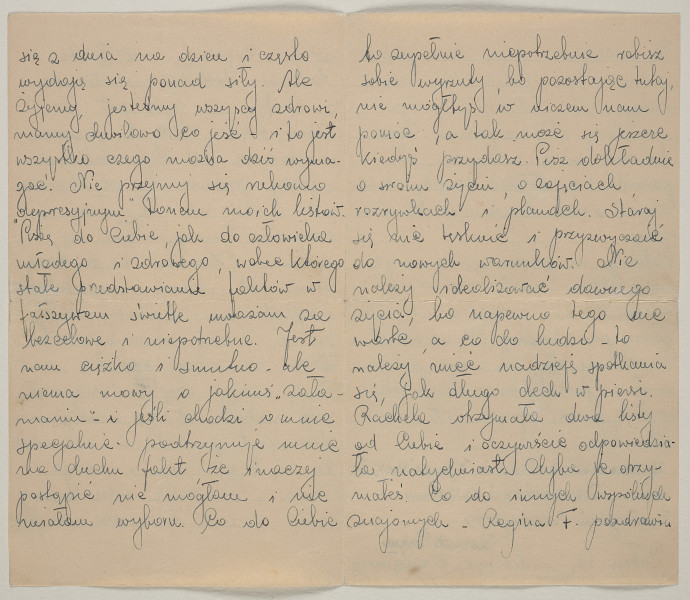 się z dnia na dzień i często
wydają się ponad siły. Ale
żyjemy, jesteśmy wszyscy zdrowi,
mamy chwilowo co jeść - i to jest
wszystko czego można dziś wyma-
gać. Nie przejmuj się rzekomo
"depresyjnym" tonem moich listów.
Piszę do Ciebie, jak do człowieka
młodego i zdrowego, wobec którego
stałe przedstawianie faktów w
fałszywem świetle uważam za
bezcelowe i niepotrzebne. Jest
nam ciężko i smutno - ale
niema mowy o jakimś „zała-
maniu" - i jeśli chodzi o mnie
specjalnie - podtrzymuje mnie
na duchu fakt że inaczej
postąpić nie mogłam i nie
miałam wyboru. Co do Ciebie
to zupełnie niepotrzebnie robisz
sobie wyrzuty, bo pozostając tutaj,
nie mógłbyś w niczem nam
pomóc, a tak może się jeszcze
kiedyś przydasz. Pisz dokładnie
o swoim życiu, o zajęciach,
rozrywkach i planach. Staraj
się nie tęsknić i przyzwyczaić
do nowych warunków. Nie
należy idealizować dawnego
życia, bo napewno tego nie
warte, a co do ludzi - to
należy mieć nadzieję spotkania
się, jak długo dech w piersi.
Rachela otrzymała dwa listy
od Ciebie i oczywiście odpowiedzia-
ła natychmiast. Chyba je otrzy-
małeś. Co do innych wspólnych
znajomych - Regina F. pozdrawia